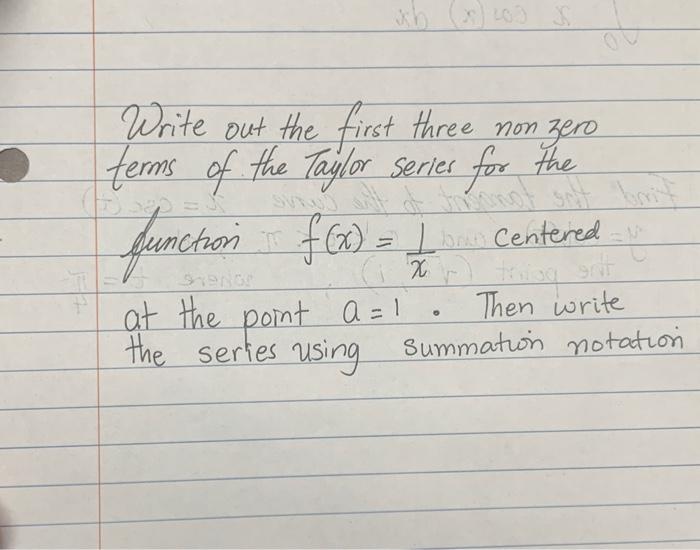 Write out the first three non zero
terms of the Taylor series for the
function f(x) = 1/x centered
at the point a = 1 . Then write
the series using summation notation